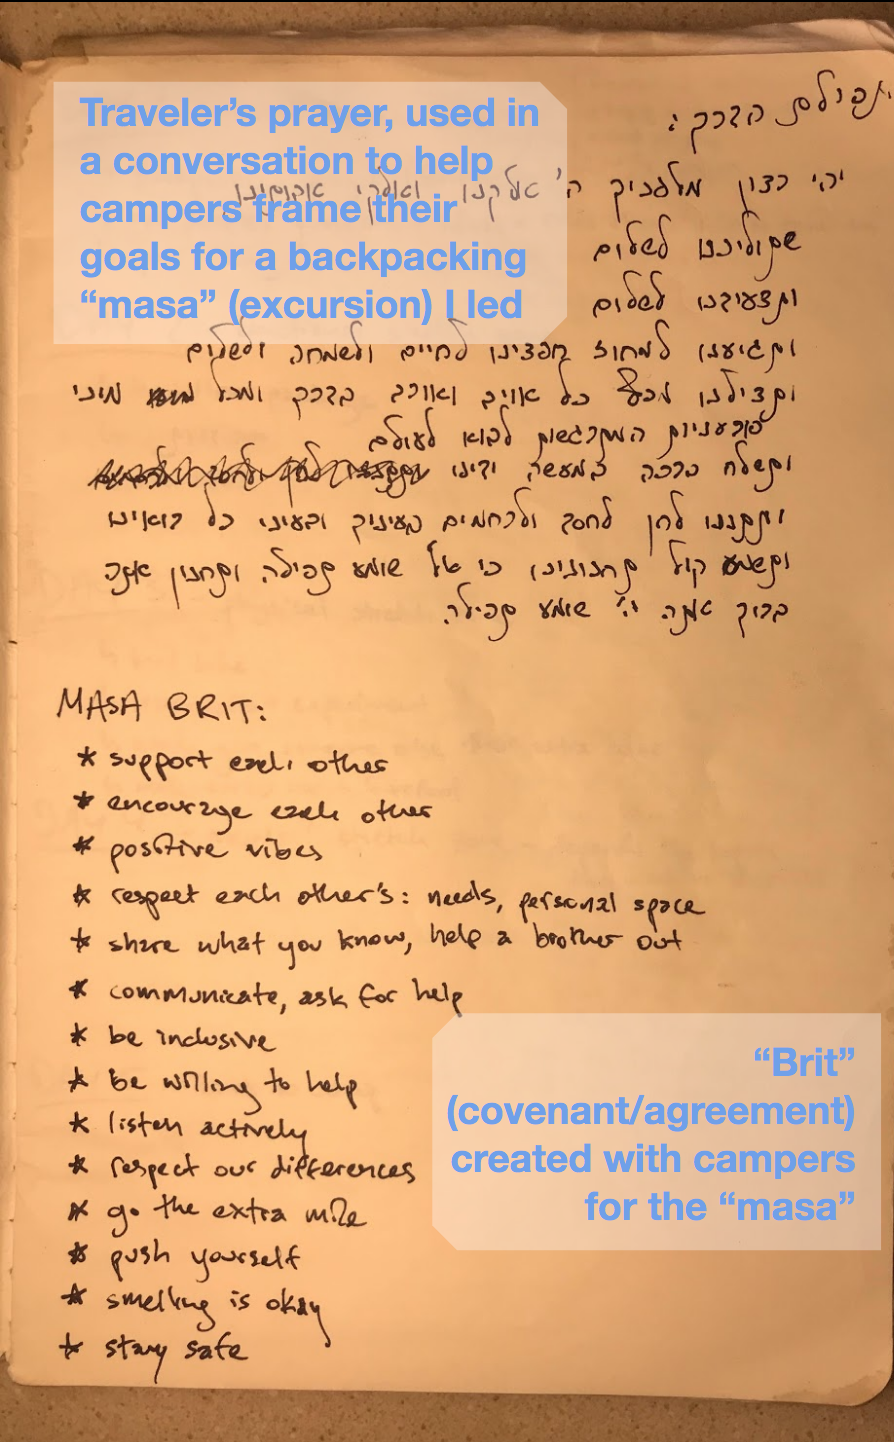 Traveler's prayer, used in
a conversation to help
campers frame their
goals for a backpacking
“masa” (excursion) I led
תפילת הדרך:
יהי רצון מלפניך ה' אלקנו ואלקי אבותינו
שתוליכנו לשלום
ותצעידנו לשלום
ותגיענו למחוז חפצינו לחיים ולשמחה ולשלום
ותצילנו מכף כל אויב ואורב בדרך ומכל מיני
פורעניות המתרגשות לבוא לעולם
ותשלח ברכה במעשה ידינו
ותתננו לחן לחסד ולרחמים בעיניך ובעיני כל רואינו
ותשמע קול תחנונינו כי אל שומע תפילה ותחנון אתה
ברוך אתה ה' שומע תפילה
MASA BRIT:
* support each other
* encourage each other
* positive vibes
* respect each other's: needs, personal space
* share what you know, help a brother out
* communicate, ask for help
* be inclusive
* be willing to help
* listen actively
* respect our differences
* go the extra mile
* push yourself
* smelling is okay
* stay safe
“Brit”
(covenant/agreement)
created with campers
for the “masa”